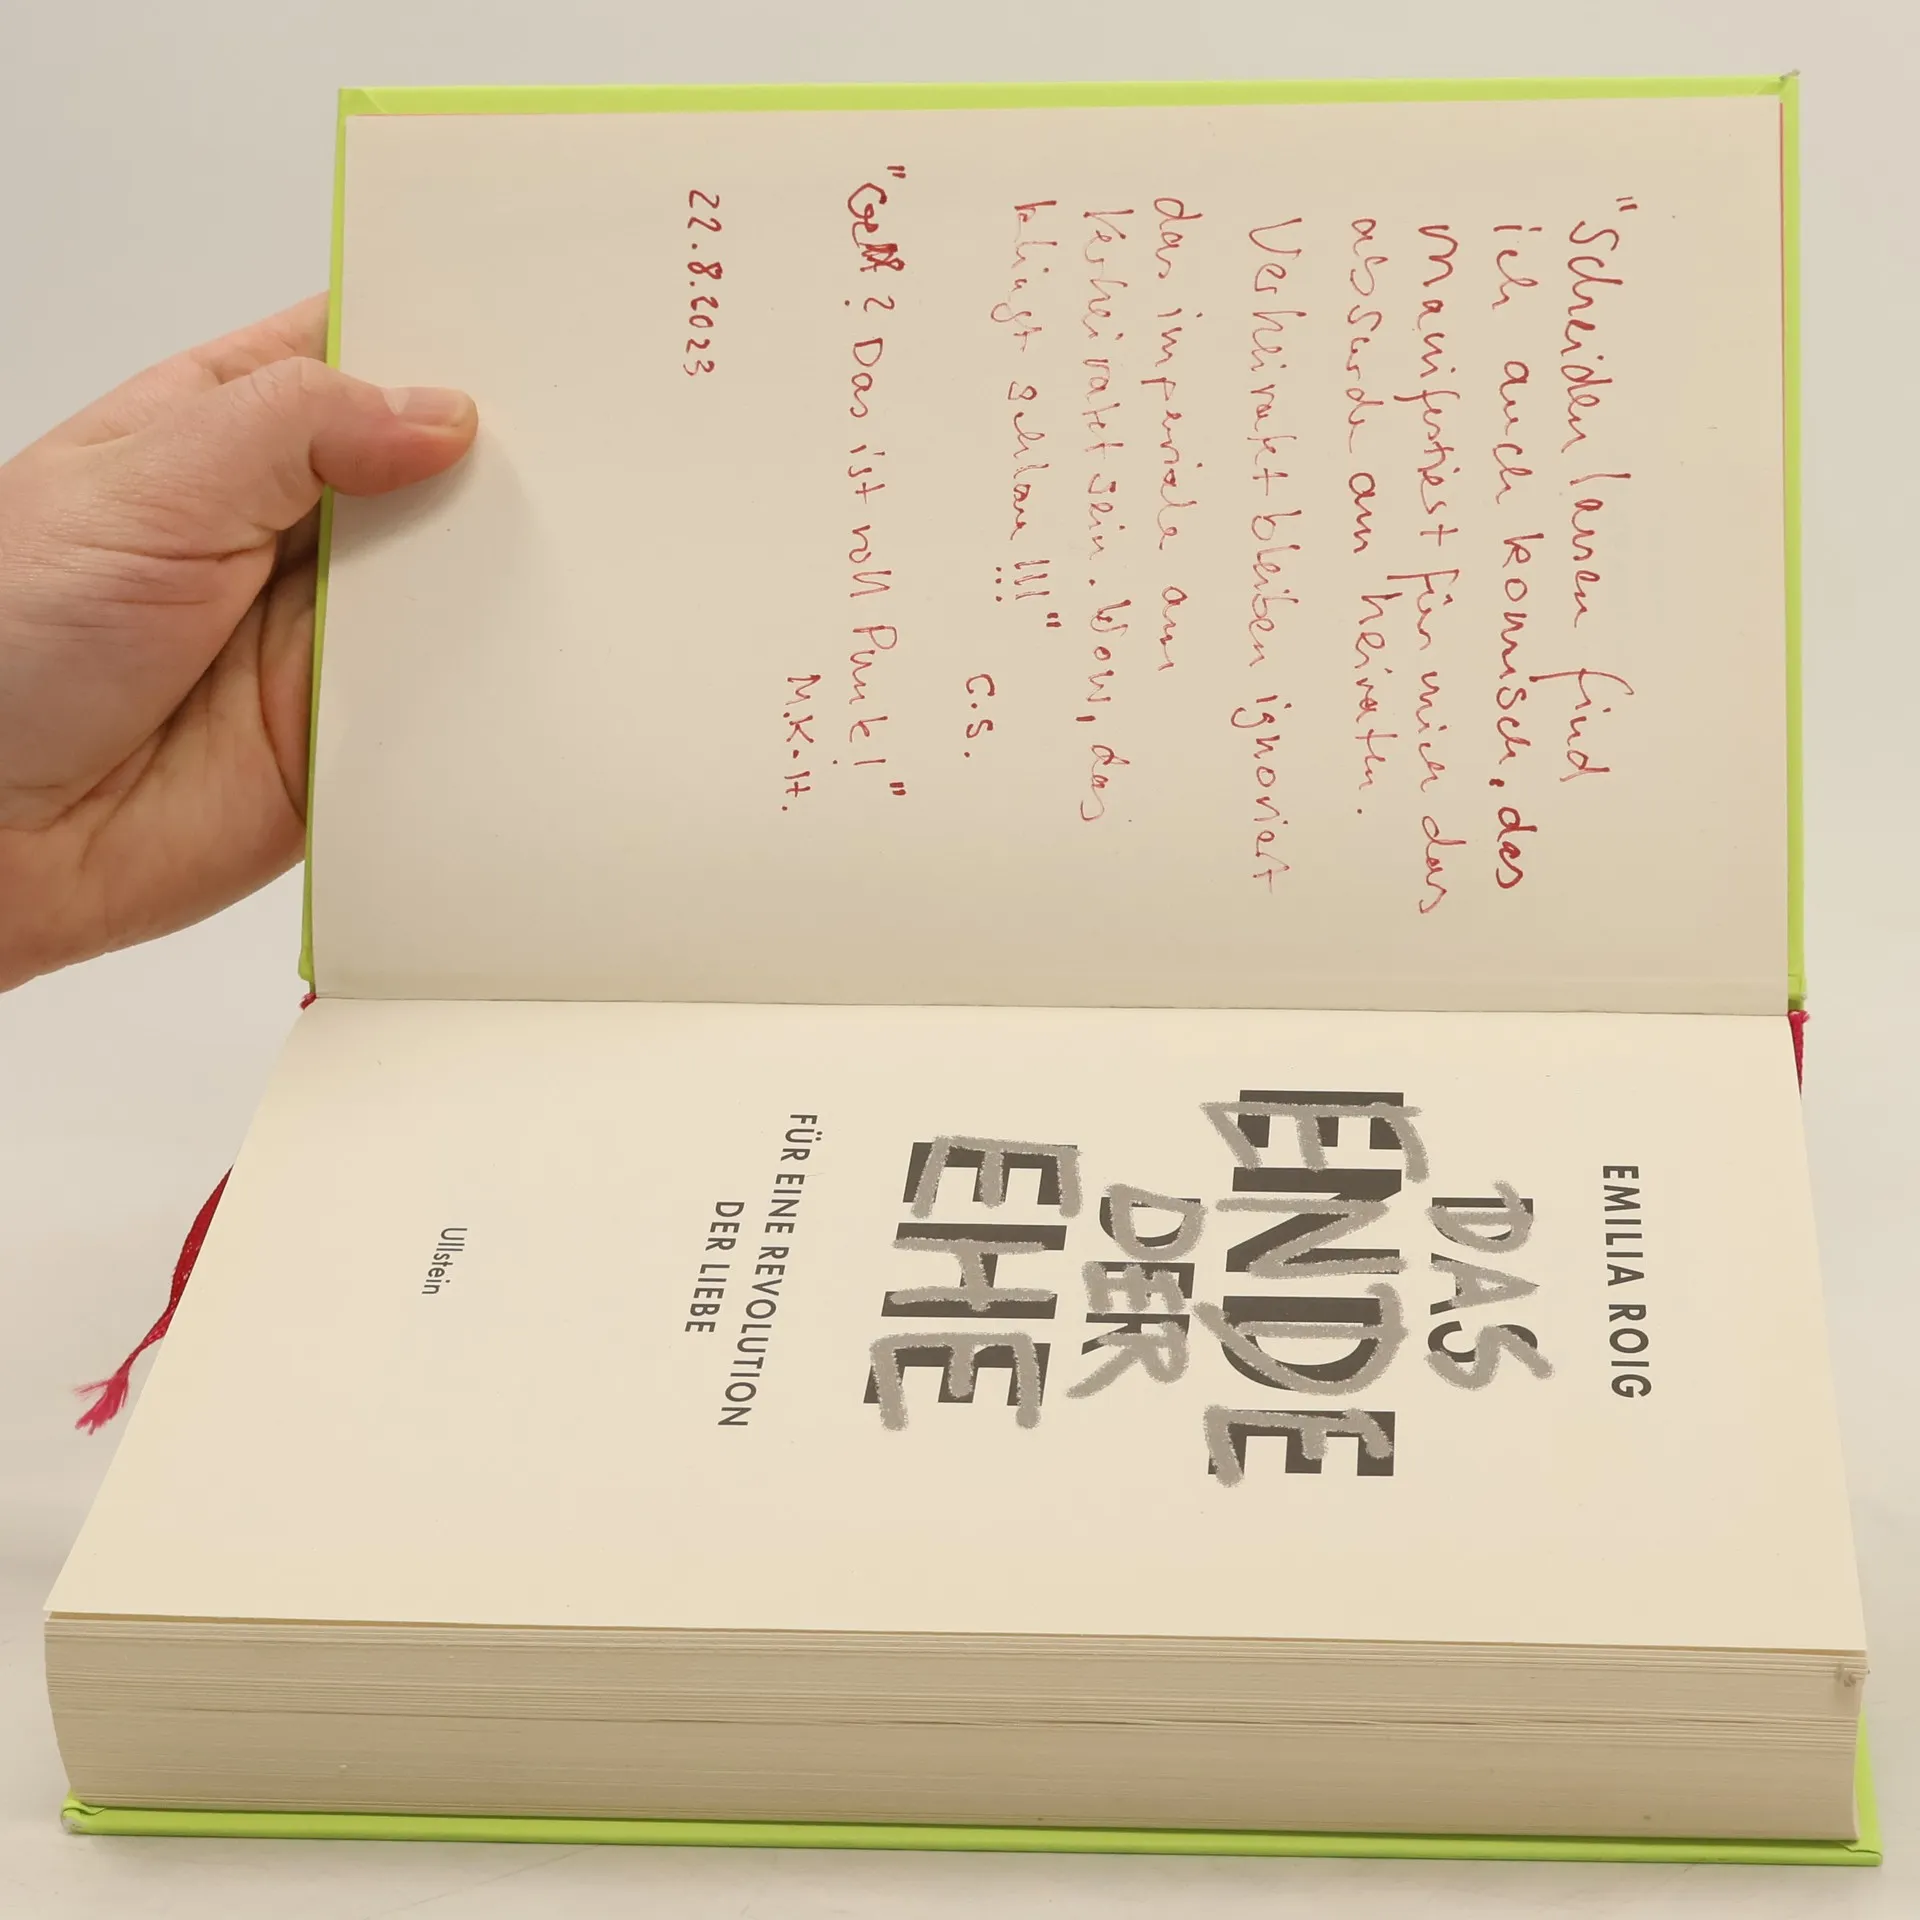 "Scheiden lassen find
ich auch komisch, das
manifestiert für mich das
absurde am heiraten.
Verheiratet bleiben ignoriert
das imperiale am
Verheiratet sein. Wow, das
klingt schlau !!!"
C.S.
"Gell? Das ist voll Punk!"
M.K-H.
22.8.2023
EMILIA ROIG
DAS
ENDE
DER
EHE
FÜR EINE REVOLUTION
DER LIEBE
Ullstein